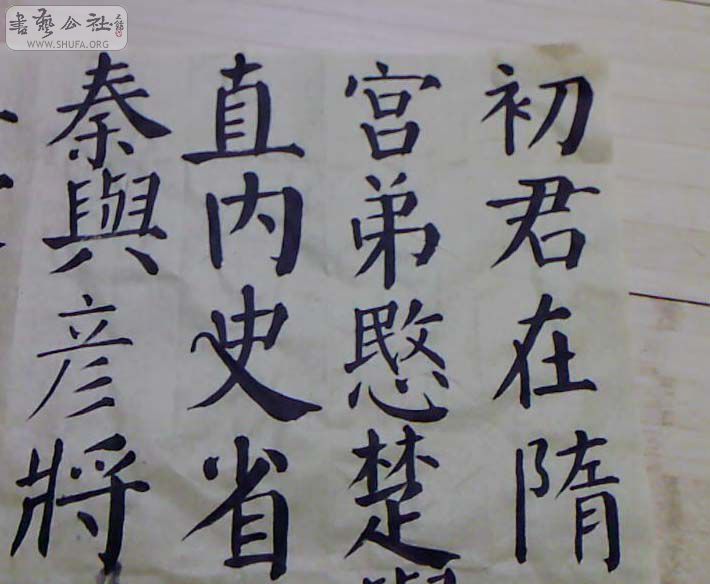 初君在隋
宫弟愍楚
直内史省
秦與彦將
書藝公社
WWW.SHUFA.ORG